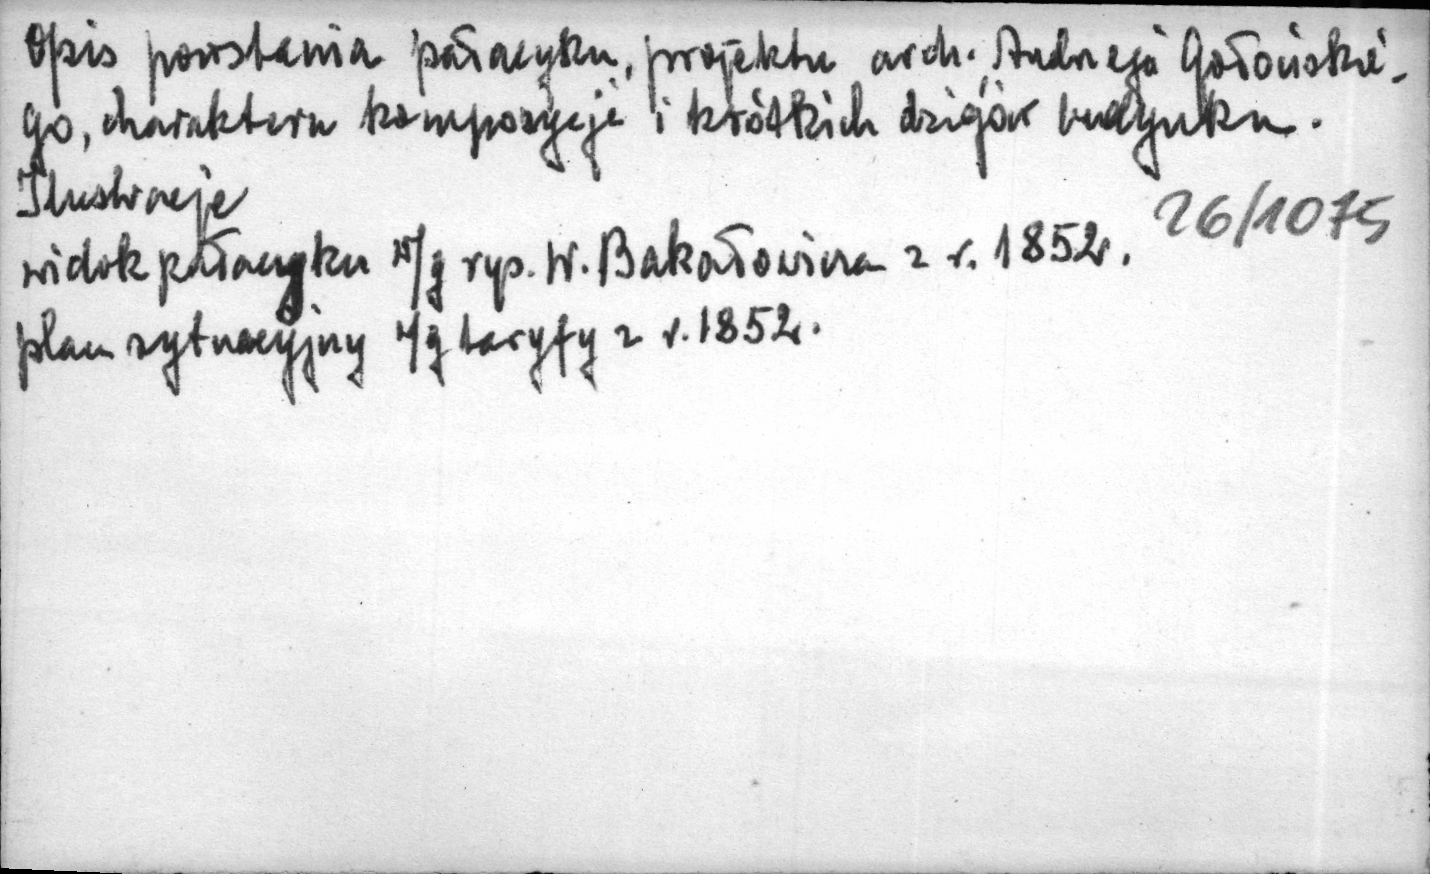 Opis powstania pałacyku, projektu arch. Andrzeja Gołońskie-
go, charakteru kompozycji i krótkich dziejów budynku.
Ilustracje
26/1075
widok pałacyku w/g rys. W. Bakałowicza z r. 1852.
plan sytuacyjny w/g taryfy z r. 1852.